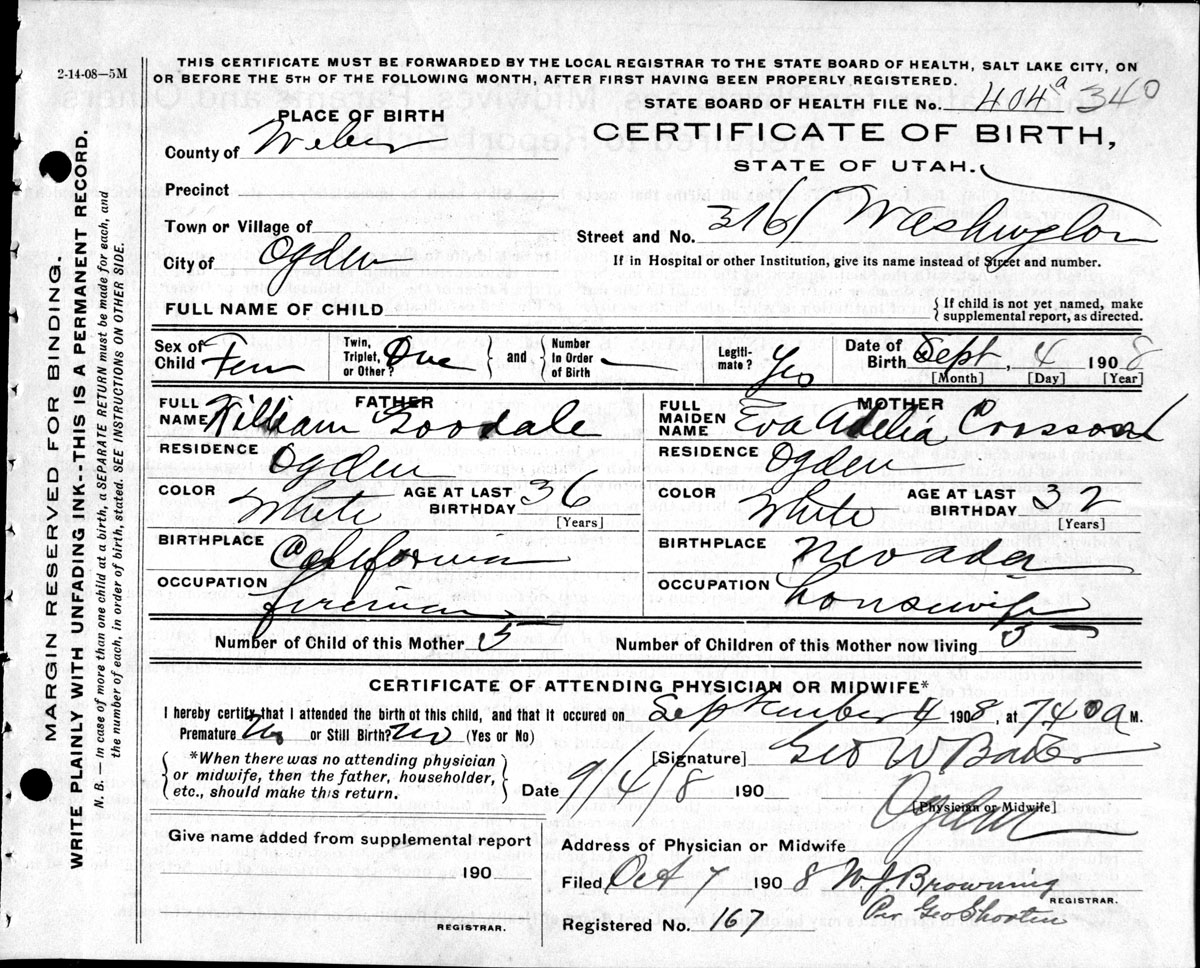 2-14-08—5M
THIS CERTIFICATE MUST BE FORWARDED BY THE LOCAL REGISTRAR TO THE STATE BOARD OF HEALTH, SALT LAKE CITY, ON
OR BEFORE THE 5TH OF THE FOLLOWING MONTH, AFTER FIRST HAVING BEEN PROPERLY REGISTERED.
STATE BOARD OF HEALTH FILE No. 404a 340
PLACE OF BIRTH
CERTIFICATE OF BIRTH,
STATE OF UTAH.
County of Weber
Precinct
Town or Village of
Street and No. 3161 Washington
City of Ogden
If in Hospital or other Institution, give its name instead of Street and number.
FULL NAME OF CHILD
{ If child is not yet named, make
supplemental report, as directed.
Sex of Child Fem
Twin, Triplet, or Other? One } and { Number In Order of Birth —
Legiti-mate? Yes
Date of Birth Sept, 4 1908
[Month] [Day] [Year]
FATHER
FULL NAME William Goodale
RESIDENCE Ogden
COLOR White AGE AT LAST BIRTHDAY 36
[Years]
BIRTHPLACE California
OCCUPATION fireman
MOTHER
FULL MAIDEN NAME Eva Adelia
RESIDENCE Ogden
COLOR White AGE AT LAST BIRTHDAY 32
[Years]
BIRTHPLACE Nevada
OCCUPATION housewife
Number of Child of this Mother 5 Number of Children of this Mother now living 5
CERTIFICATE OF ATTENDING PHYSICIAN OR MIDWIFE*
I hereby certify that I attended the birth of this child, and that it occured on September 4 1908, at 740a M.
Premature No or Still Birth? No (Yes or No)
{ *When there was no attending physician
or midwife, then the father, householder,
etc., should make this return. }
[Signature] Geo W Baker
Date 9/4/8 190
[Physician or Midwife]
Address of Physician or Midwife Ogden
Give name added from supplemental report
190
REGISTRAR.
Filed Oct 7 1908 W. J. Browning
REGISTRAR.
Per Geo Shorten
Registered No. 167
MARGIN RESERVED FOR BINDING.
WRITE PLAINLY WITH UNFADING INK--THIS IS A PERMANENT RECORD.
N. B. — In case of more than one child at a birth, a SEPARATE RETURN must be made for each, and
the number of each, in order of birth, stated. SEE INSTRUCTIONS ON OTHER SIDE.